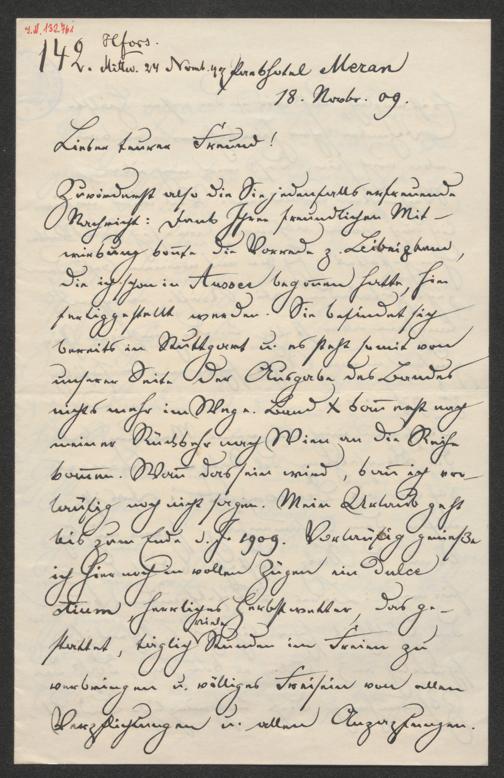 I.N. 132.761
Hfors.
142. Mittw. 24 Novbr. 09 Parkhotel Meran
18. Novbr. 09.
Lieber teurer Freund!
Zuvörderst also die Sie jedenfalls erfreuende
Nachricht: Dank Ihrer freundlichen Mit-
wirkung konnte die Vorrede z. Leibnizband,
die ich schon in Aussee begonnen hatte, hier
fertiggestellt werden. Sie befindet sich
bereits in Stuttgart u. es steht somit von
unserer Seite der Ausgabe des Bandes
nichts mehr im Wege. Band X kann erst nach
meiner Rückkehr nach Wien an die Reihe
kommen. Wann das sein wird, kann ich vor-
läufig noch nicht sagen. Mein Urlaub geht
bis zum Ende d. J. 1909. Vorläufig genieße
ich hier noch in vollen Zügen ein Dulce
otium, herrliches Herbstwetter, das ge-
stattet, täglich viele Stunden im Freien zu
verbringen u. völliges Freisein von allen
Verpflichtungen u. allen Anzapfungen.